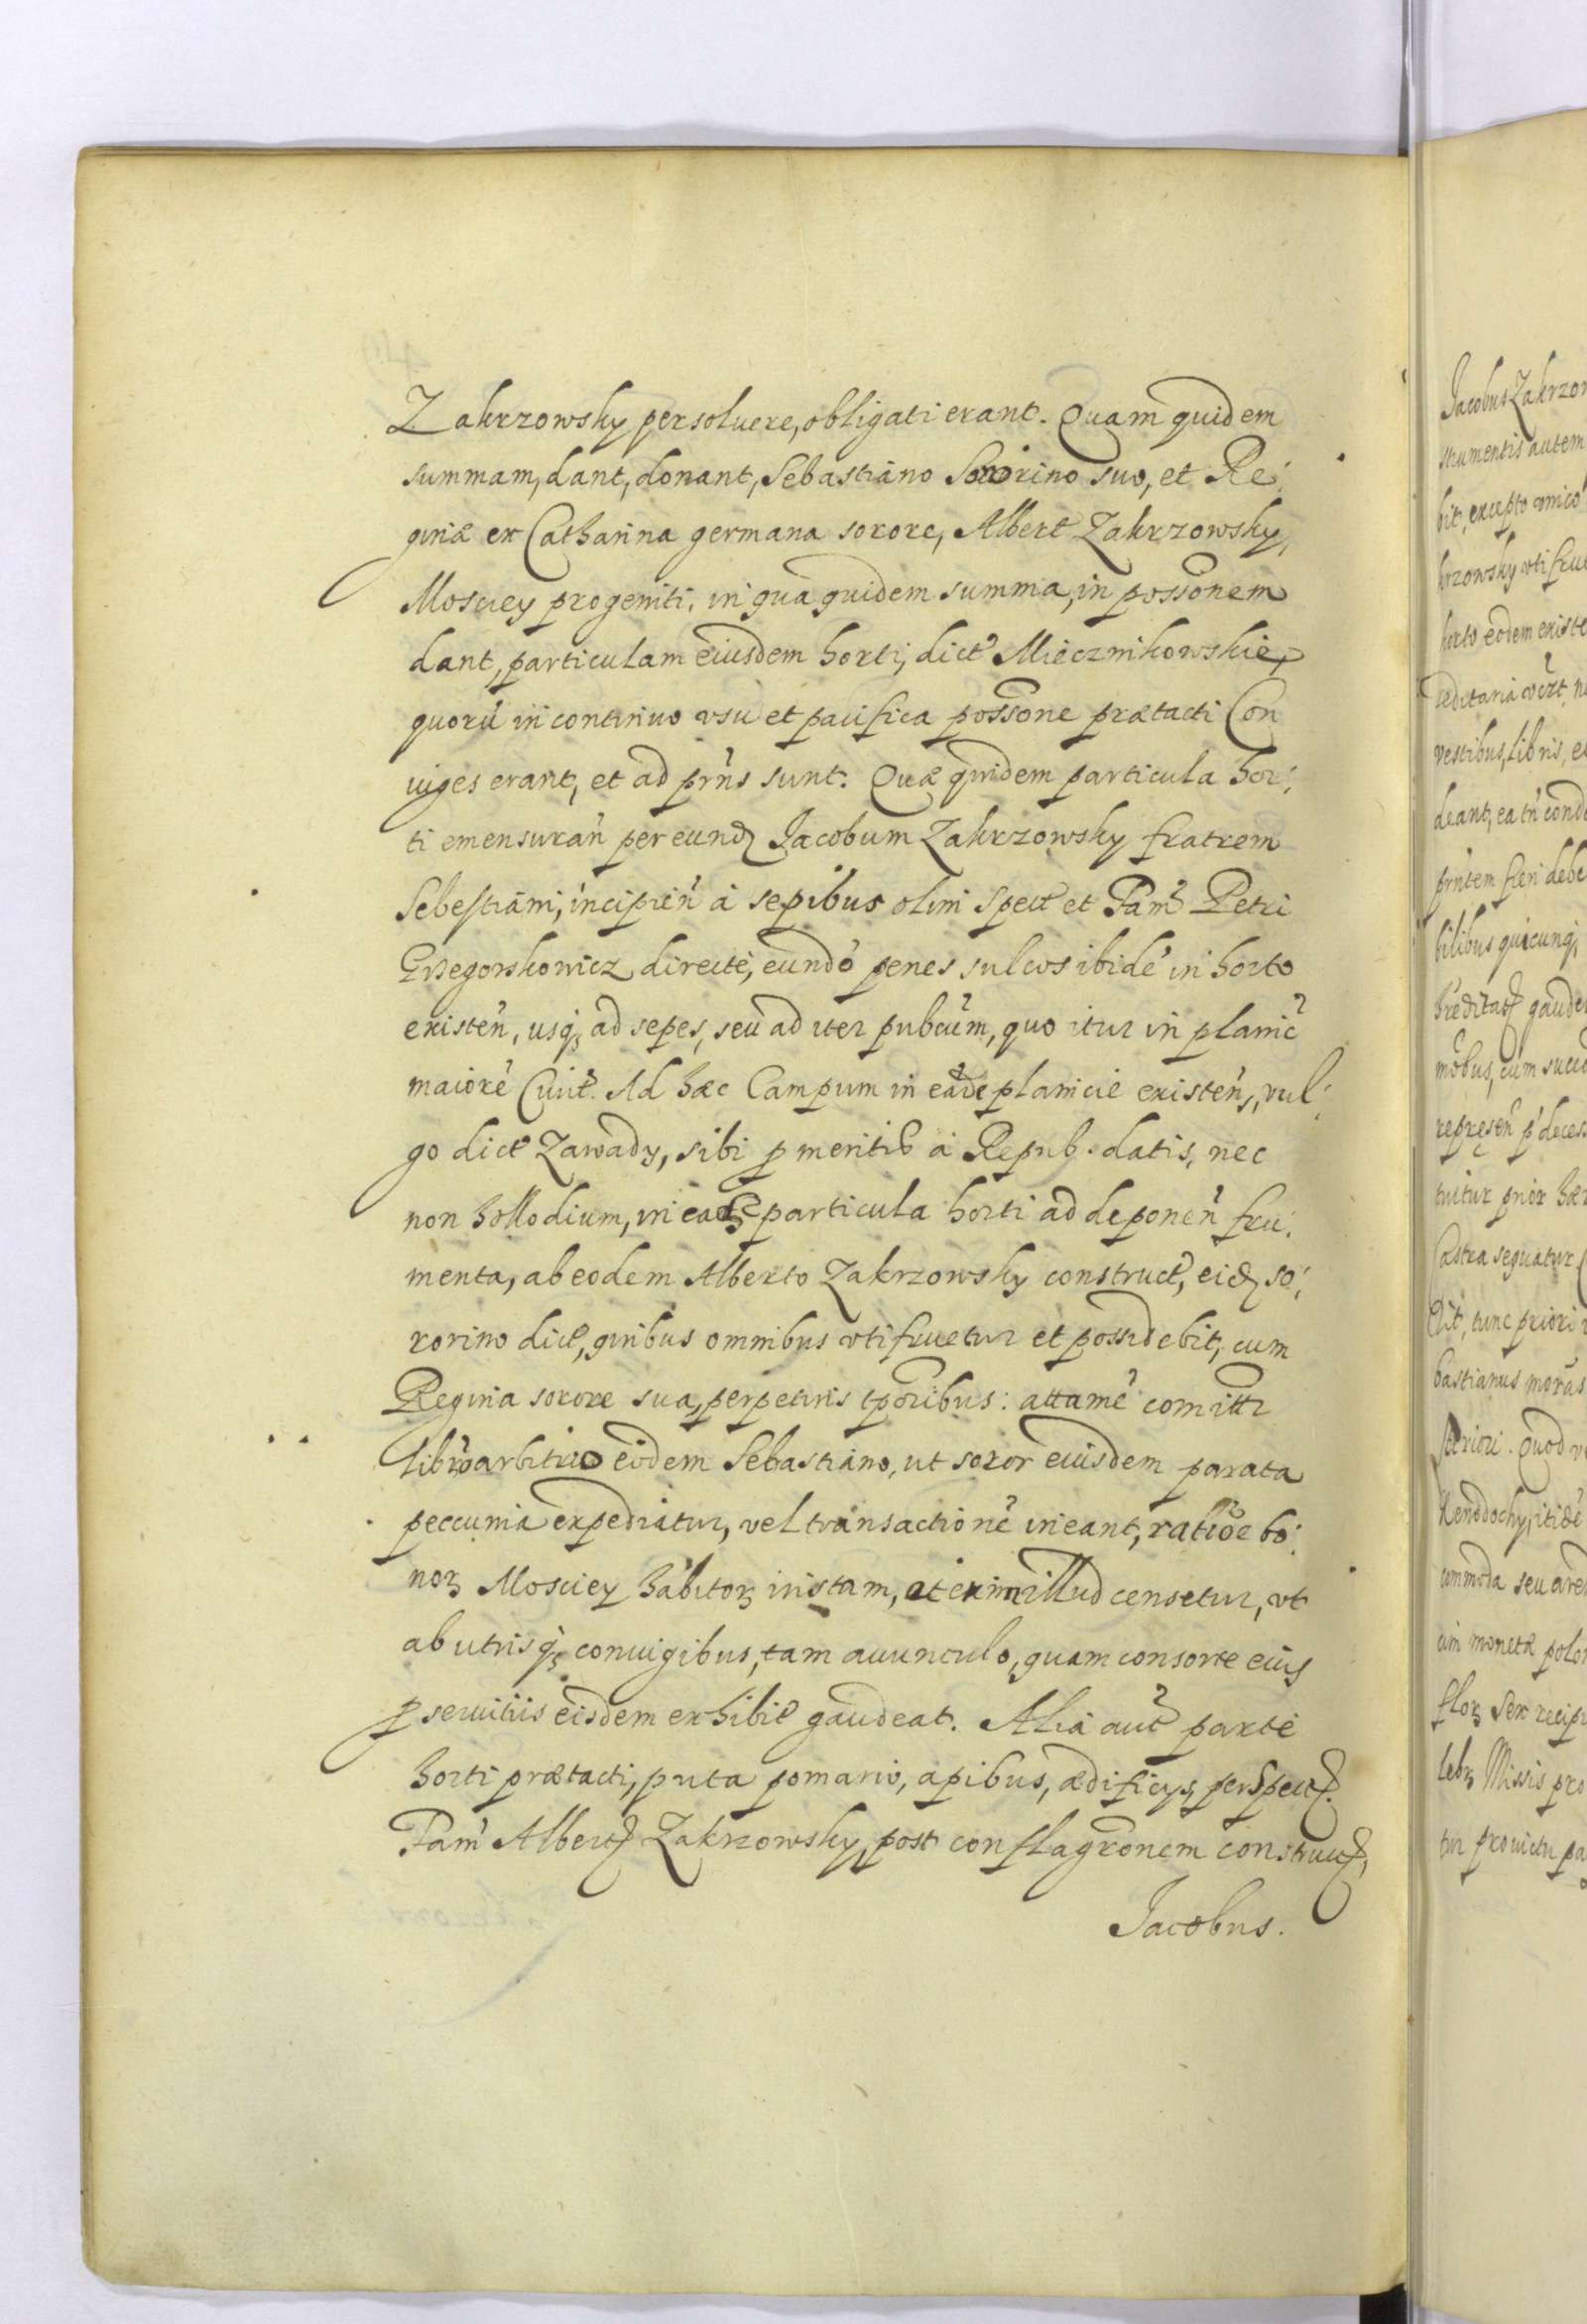 Zakrzowsky persoluere, obligati erant. Quam quidem
summam, dant, donant, Sebastiano Sororino suo, et Re:
ginæ ex Catharina germana sorore, Albert Zakrzowsky,
Mosciey progeniti, in qua quidem summa, in possõnem
dant, particulam eiusdem horti, dict Miecznikowskie,
quorũ in continuo vsu et pacifica possõne prætacti Con
iuges erant, et ad prñs sunt. Quæ quidem particula hor:
ti emensurañ per eund Jacobum Zakrzowsky fratrem
Sebestiani, incipieñ à sepibus olim Spect et Fam Petri
Grzegorskowicz directè, eundo penes sulcos ibidẽ in horto
existeñ, usq; ad sepes, seu ad iter pubcũm, quo itur in planic
maiorẽ Ciuit. Ad hæc Campum in eade planicie existeñs, vul:
go dict Zawady, sibi p meritis à Repub. datis, nec
non hollodium, in ead particula horti ad deponeñ fru:
menta, ab eodem Alberto Zakrzowsky construct, eid so:
rorino dict, quibus omnibus vtifruetur et possidebit, cum
Regina sorore sua, perpetuis tpõribus: attamẽ comittr
librõ arbitrio eidem Sebastiano, ut soror eiusdem parata
peccunia expediatur, vel transactionẽ ineant, ratiõe bo:
noꝝ Mosciey habitoꝝ instam, etenim illud censetur, vt
ab utrisq; coniugibus, tam auunculo, quam consorte eius
p seruitiis eisdem exhibit gaudeat. Alia aut parte
horti prætacti, puta pomario, apibus, ædificys, per Spect
Fam Albert Zakrzowsky, post conflagrõnem construct,
Jacobus.
Jacobus Zakrzow
strumentis autem
bit, excepto
krzowsky vti fru
horto eodem existe
reditaria
vestibus, libris, e
deant, ea tñ cond
prñtem fieri debe
bilibus quicunq;
hæreditat gaude
mobus, cum
represeñ p deces
tuitur prior hær
Castra sequatur
tunc priori
bastianus moras
periori. Quod v
itidẽ
commoda seu
cim monetæ polo
floꝝ sex recipi
lebꝝ Missis pro
tur prouictu pa